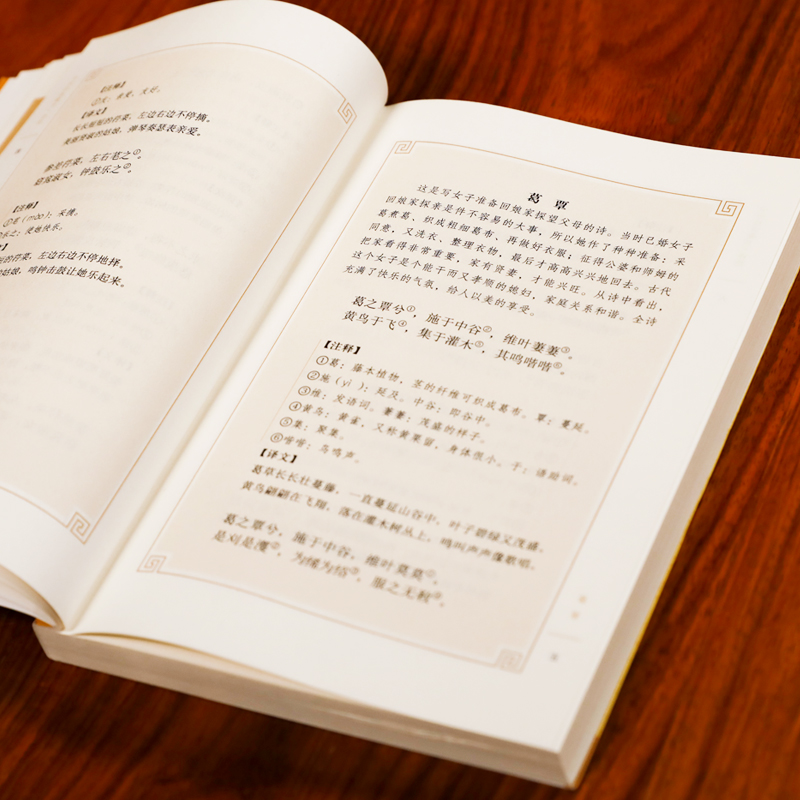 【注释】
①友：亲爱，友好。
【译文】
长长短短的荇菜，左边右边不停摘。
姑娘，弹琴奏瑟表亲爱。
参差荇菜，左右芼之①。
窈窕淑女，钟鼓乐之②。
【注释】
①芼（mào）：采摘。
②乐之：使她快乐。
的荇菜，左边右边不停地择。
的姑娘，鸣钟击鼓让她乐起来。
葛 覃
这是写女子准备回娘家探望父母的诗。当时已婚女子
回娘家探亲是件不容易的大事，所以她作了种种准备：采
葛煮葛、织成粗细葛布、再做好衣服；征得公婆和师姆的
同意，又洗衣、整理衣物，最后才高高兴兴地回去。古代
把家看得非常重要，家有贤妻，才能兴旺。从诗中看出，
这个女子是个能干而又孝顺的媳妇，家庭关系和谐。全诗
充满了快乐的气氛，给人以美的享受。
葛之覃兮①，施于中谷②，维叶萋萋③。
黄鸟于飞④，集于灌木⑤，其鸣喈喈⑥。
【注释】
①葛：藤本植物，茎的纤维可织成葛布。覃：蔓延。
②施（yì）：延及。中谷：即谷中。
③维：发语词。萋萋：茂盛的样子。
④黄鸟：黄雀，又称黄栗留，身体很小。于：语助词。
⑤集：聚集。
⑥喈喈：鸟鸣声。
【译文】
葛草长长壮蔓藤，一直蔓延山谷中，叶子碧绿又茂盛。
黄鸟翩翩在飞翔，落在灌木树丛上，鸣叫声声像歌唱。
葛之覃兮，施于中谷，维叶莫莫①。
是刈是濩②，为絺为绤③，服之无斁④。